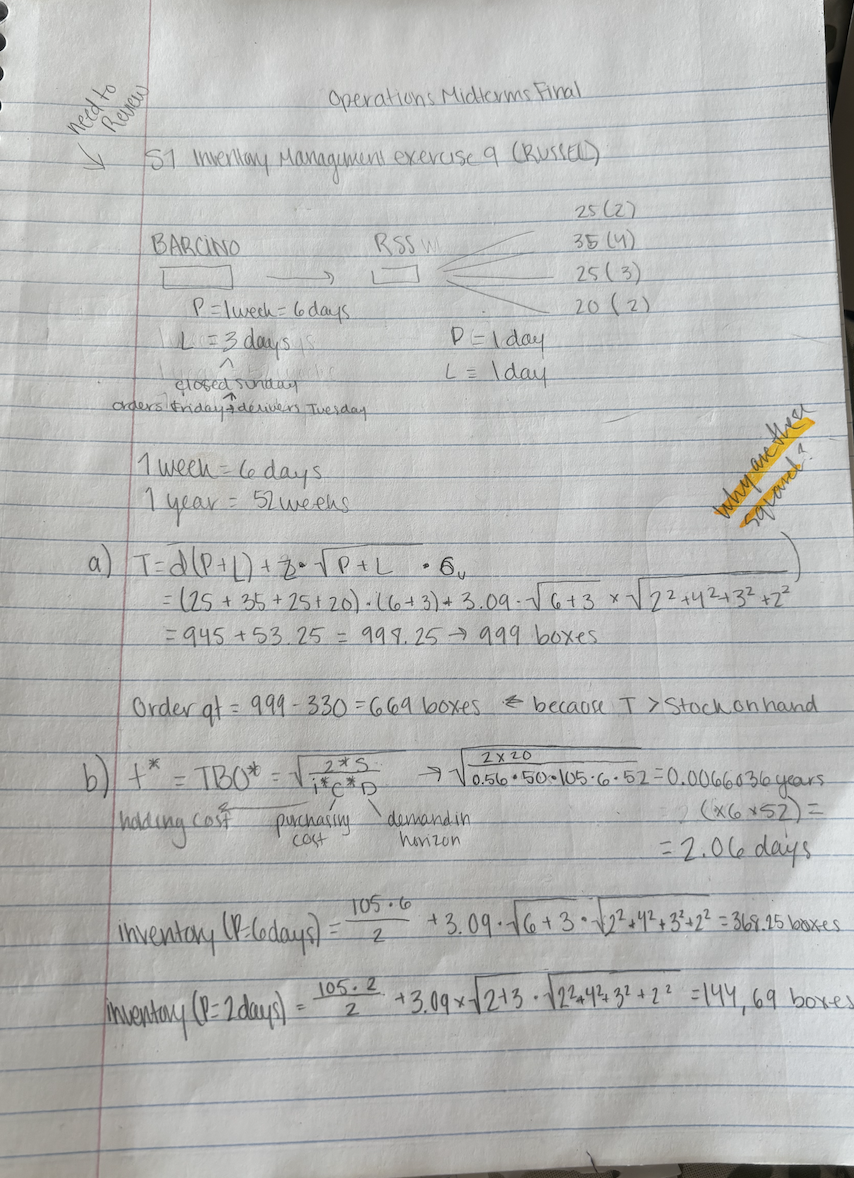 Operations Midterms Final
need to
Review
S7 Inventory Management exercise 9 (RUSSEL)
BARCINO
RSSW
25 (2)
35 (4)
25 (3)
20 (2)
P = 1 week = 6 days
L = 3 days
closed sunday
orders friday → delivers Tuesday
P = 1 day
L = 1 day
1 week = 6 days
1 year = 52 weeks
why are these
squared?
a) T = d(P+L) + z · √P+L · σᵤ
= (25 + 35 + 25 + 20) · (6+3) + 3.09 · √6+3 × √2²+4²+3²+2² )
= 945 + 53.25 = 998.25 → 999 boxes
Order qt = 999 - 330 = 669 boxes ← because T > Stock on hand
b) t* = TBO* = √2*S / i*C*D → √2×20 / 0.56·50·105·6·52 = 0.0066036 years
(×6×52) =
= 2.06 days
holding cost
purchasing cost
demand in horizon
inventory (P=6days) = 105·6 / 2 + 3.09 · √6+3 · √2²+4²+3²+2² = 368.25 boxes
inventory (P=2days) = 105·2 / 2 + 3.09 × √2+3 · √2²+4²+3²+2² = 144,69 boxes